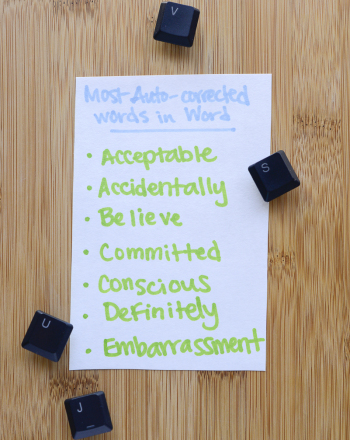 V
Most Auto-corrected
words in Word
S
• Acceptable
• Accidentally
• Believe
• Committed
• Conscious
• Definitely
• Embarrassment
U
J